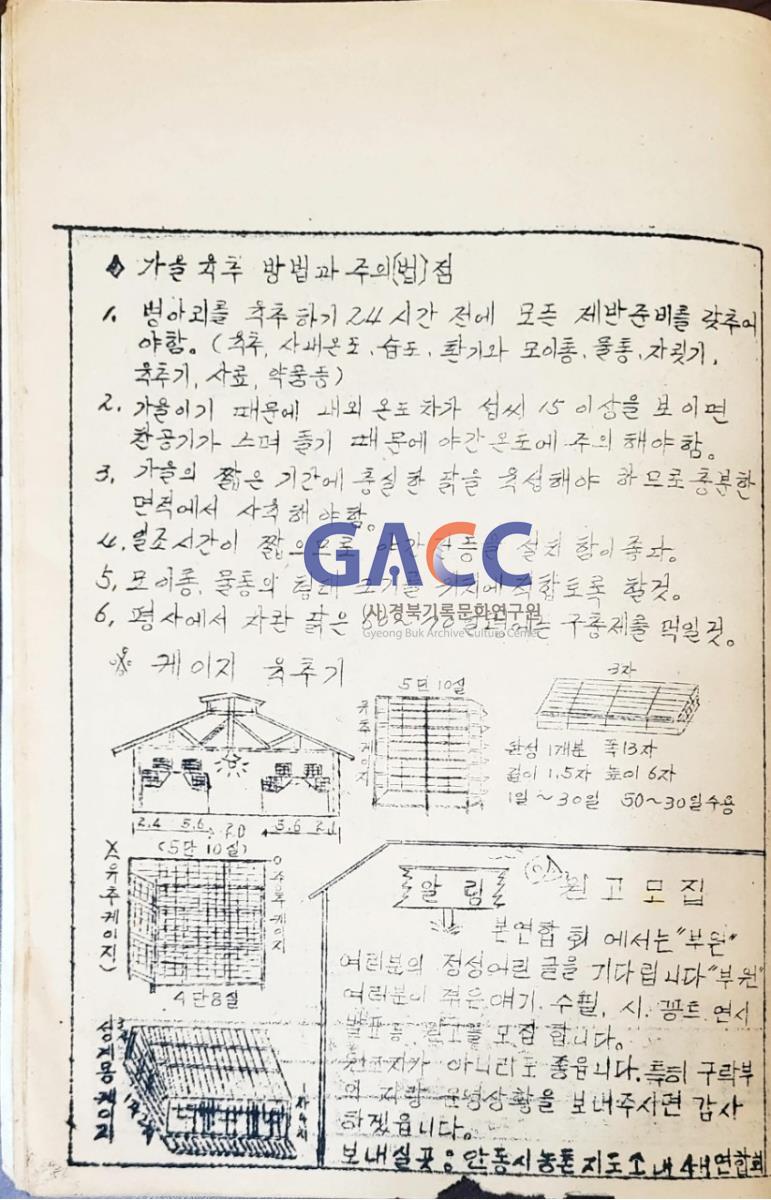 가을 육추 방법과 주의(법)점
1. 병아리를 육추하기 24시간 전에 모든 제반준비를 갖추어
야함. (육추, 사내온도, 습도, 환기와 모이통, 물통, 자릿기,
육추기, 사료, 약품등)
2. 가을이기 때문에 내외 온도차가 섭씨 15 이상을 보이면
찬공기가 스며 들기 때문에 야간온도에 주의 해야함.
3. 가을의 짧은 기간에 충실한 닭을 육성해야 하므로 충분한
면적에서 사육해야함.
4. 일조시간이 짧으므로 야간전등을 설치함이 좋다.
5. 모이통, 물통의 형태 크기를 위치에 적합토록 할것.
6. 평사에서 자란 닭은 구충제를 먹일것.
GACC
(사)경북기록문화연구원
Gyeong Buk Archive Culture Center
※ 케이지 육추기
5단 10실
3자
유추케이지
완성 1개분 폭 13자
길이 1.5자 높이 6자
1일~30일 50~30일수용
2.4 5.6 2.0 5.6 2.1
(5단 10실)
유추케이지)
4단8실
성계용케이지
알림
원고모집
본연합회 에서는 "부원"
여러분의 정성어린 글을 기다립니다 "부원"
여러분이 겪은 얘기, 수필, 시, 꽁트 연서
발표등 원고를 모집 합니다.
원고지가 아니라도 좋읍니다. 특히 구락부
의 자랑 운영상황을 보내주시면 감사
하겠읍니다.
보내실곳: 안동시농촌지도소내 4H연합회